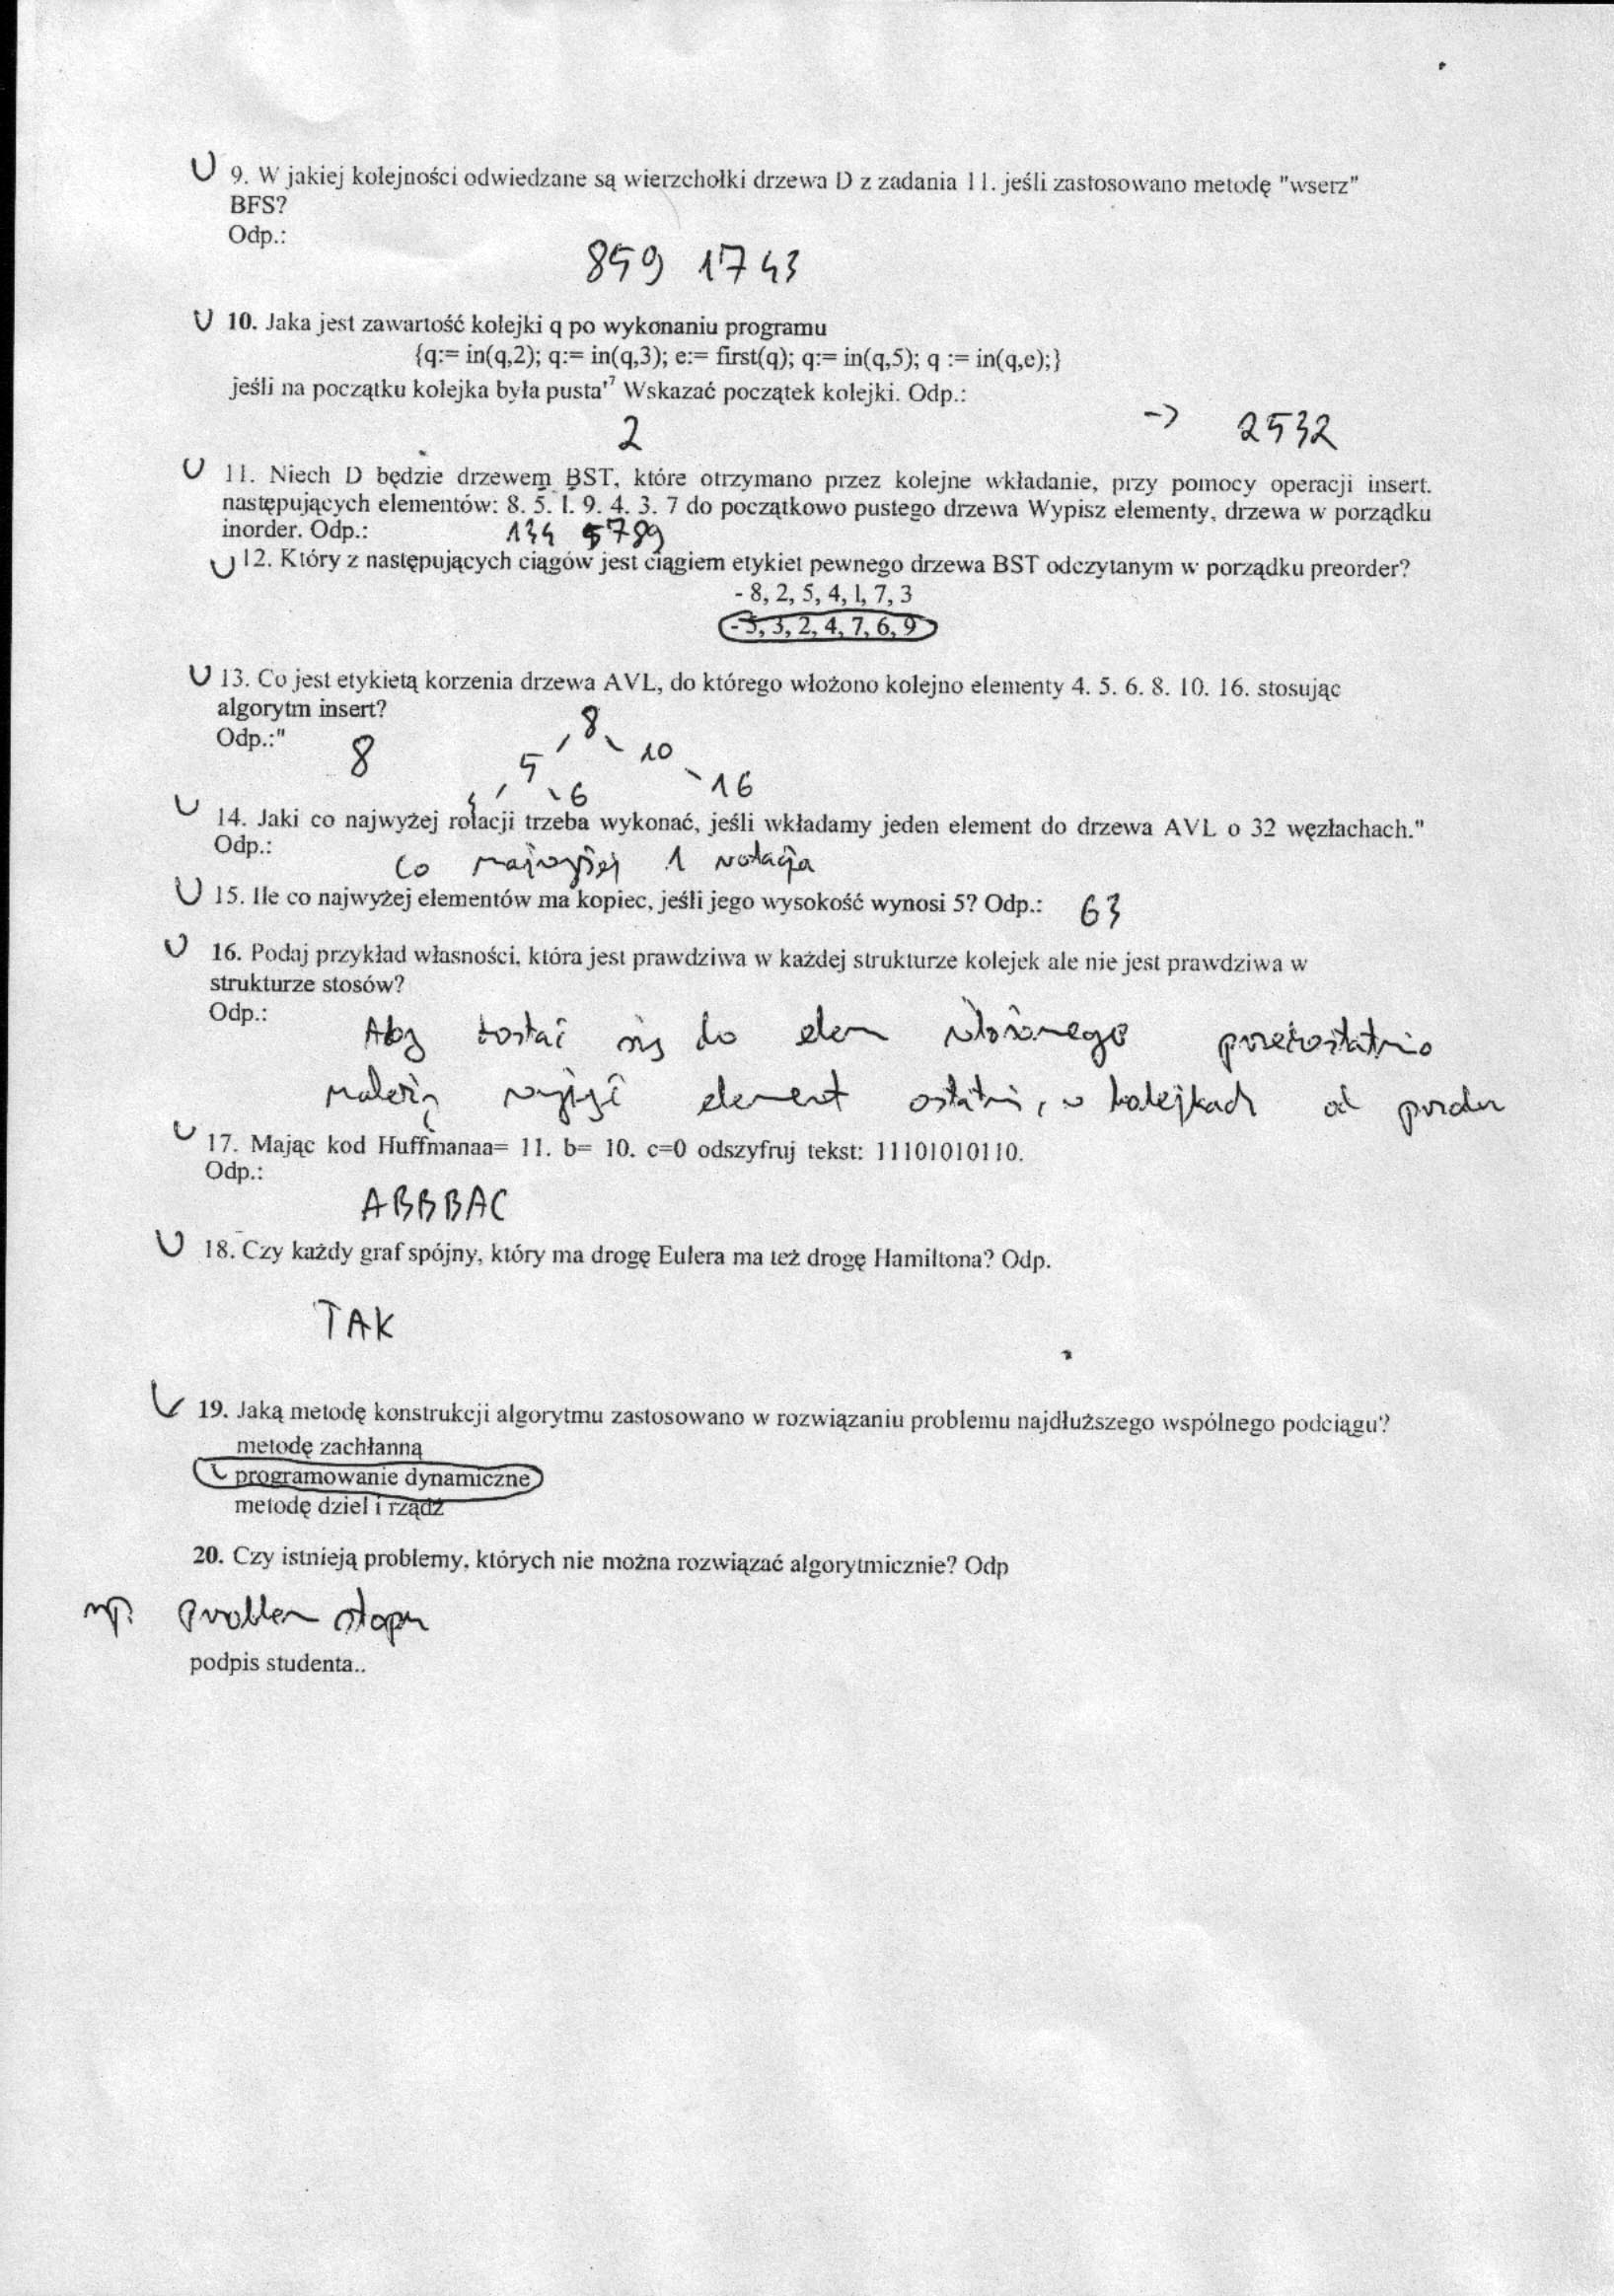 9. W jakiej kolejności odwiedzane są wierzchołki drzewa D z zadania 11. jeśli zastosowano metodę "wserz"
BFS?
Odp.:
859 1743
10. Jaka jest zawartość kolejki q po wykonaniu programu
{q:= in(q,2); q:= in(q,3); e:= first(q); q:= in(q,5); q := in(q,e);}
jeśli na początku kolejka była pusta'? Wskazać początek kolejki. Odp.:
2 -> 2532
11. Niech D będzie drzewem BST, które otrzymano przez kolejne wkładanie, przy pomocy operacji insert.
następujących elementów: 8. 5. 1. 9. 4. 3. 7 do początkowo pustego drzewa Wypisz elementy, drzewa w porządku
inorder. Odp.: 134 5789
12. Który z następujących ciągów jest ciągiem etykiet pewnego drzewa BST odczytanym w porządku preorder?
- 8, 2, 5, 4, 1, 7, 3
- 5, 3, 2, 4, 7, 6, 9
13. Co jest etykietą korzenia drzewa AVL, do którego włożono kolejno elementy 4. 5. 6. 8. 10. 16. stosując
algorytm insert?
8
Odp.:" 8
5 10
4 6 16
14. Jaki co najwyżej rotacji trzeba wykonać, jeśli wkładamy jeden element do drzewa AVL o 32 węzłachach."
Odp.:
Co najwyżej 1 rotacja
15. Ile co najwyżej elementów ma kopiec, jeśli jego wysokość wynosi 5? Odp.: 63
16. Podaj przykład własności, która jest prawdziwa w każdej strukturze kolejek ale nie jest prawdziwa w
strukturze stosów?
Odp.:
Aby dostać się do elem włożonego przedostatnio
należy wyjąć element ostatni, w kolejkach od przodu
17. Mając kod Huffmanaa= 11. b= 10. c=0 odszyfruj tekst: 11101010110.
Odp.:
ABBBAC
18. Czy każdy graf spójny, który ma drogę Eulera ma też drogę Hamiltona? Odp.
TAK
19. Jaką metodę konstrukcji algorytmu zastosowano w rozwiązaniu problemu najdłuższego wspólnego podciągu'?
metodę zachłanną
programowanie dynamiczne
metodę dziel i rządź
20. Czy istnieją problemy, których nie można rozwiązać algorytmicznie? Odp
np. problem stopu
podpis studenta..